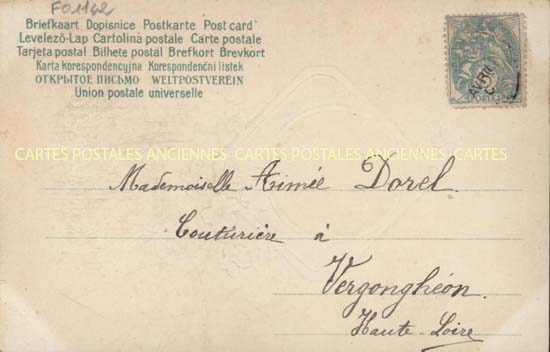 F01142
Briefkaart Dopisnice Postkarte Post card
Levelező-Lap Cartolina postale Carte postale
Tarjeta postal Bilhete postal Brefkort Brevkort
Karta korespondencyjna Korespondenční listek
ОТКРЫТОЕ ПИСЬМО WELTPOSTVEREIN
Union postale universelle
POSTES
AVRIL
CARTES POSTALES ANCIENNES CARTES POSTALES ANCIENNES CARTES
Mademoiselle Aimée Dorel
Couturière à
Vergonghéon.
Haute-Loire